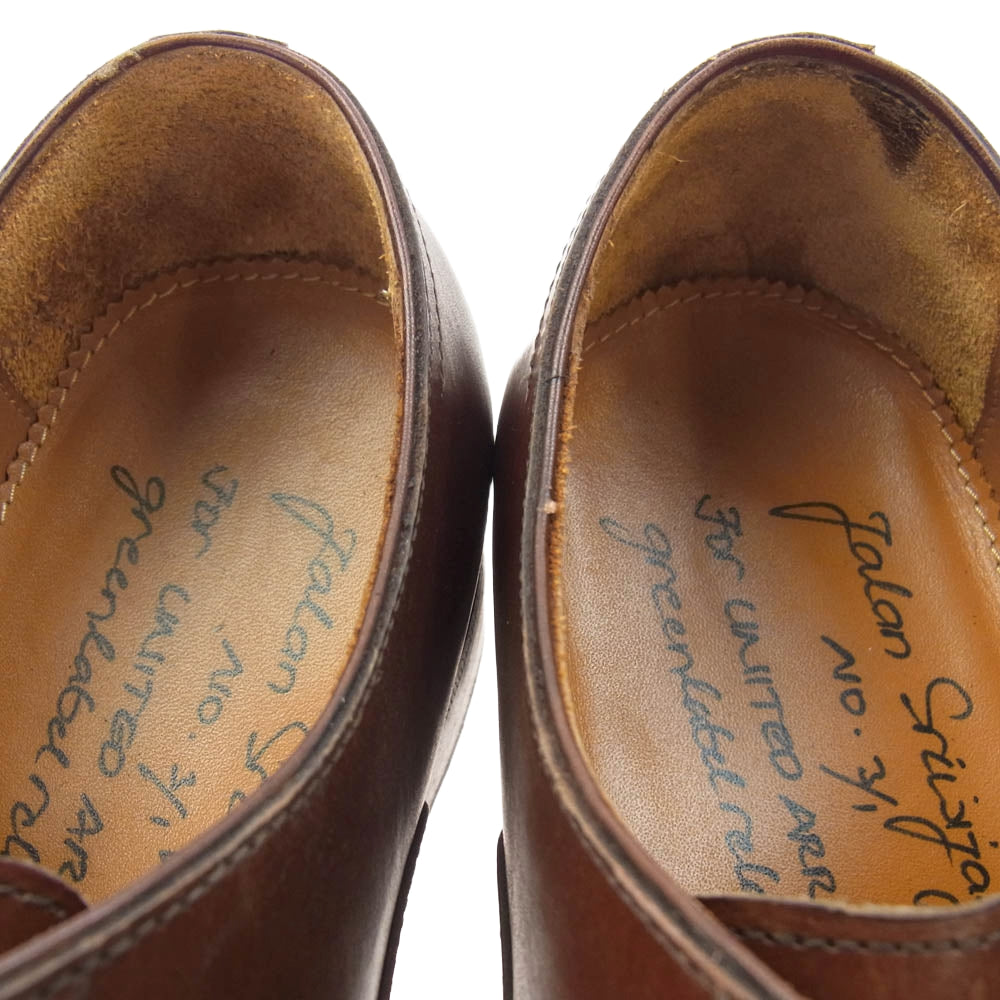 Jalan
No. 3/1
For UNITED AR
greenlabel rel
Jalan Sriwija
No. 3/1
For UNITED ARR
greenlabel rela